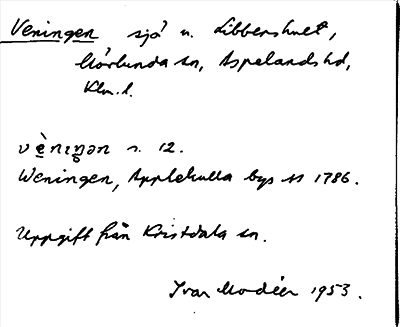 Veningen sjö n. Libbershult,
Mörlunda sn, Aspelands hd,
Klm. l.
vè̱nıŋən s. 12.
Weningen, Applekulla bys ## 1786.
Uppgift från Kristdala sn.
Ivar Modéer 1953.